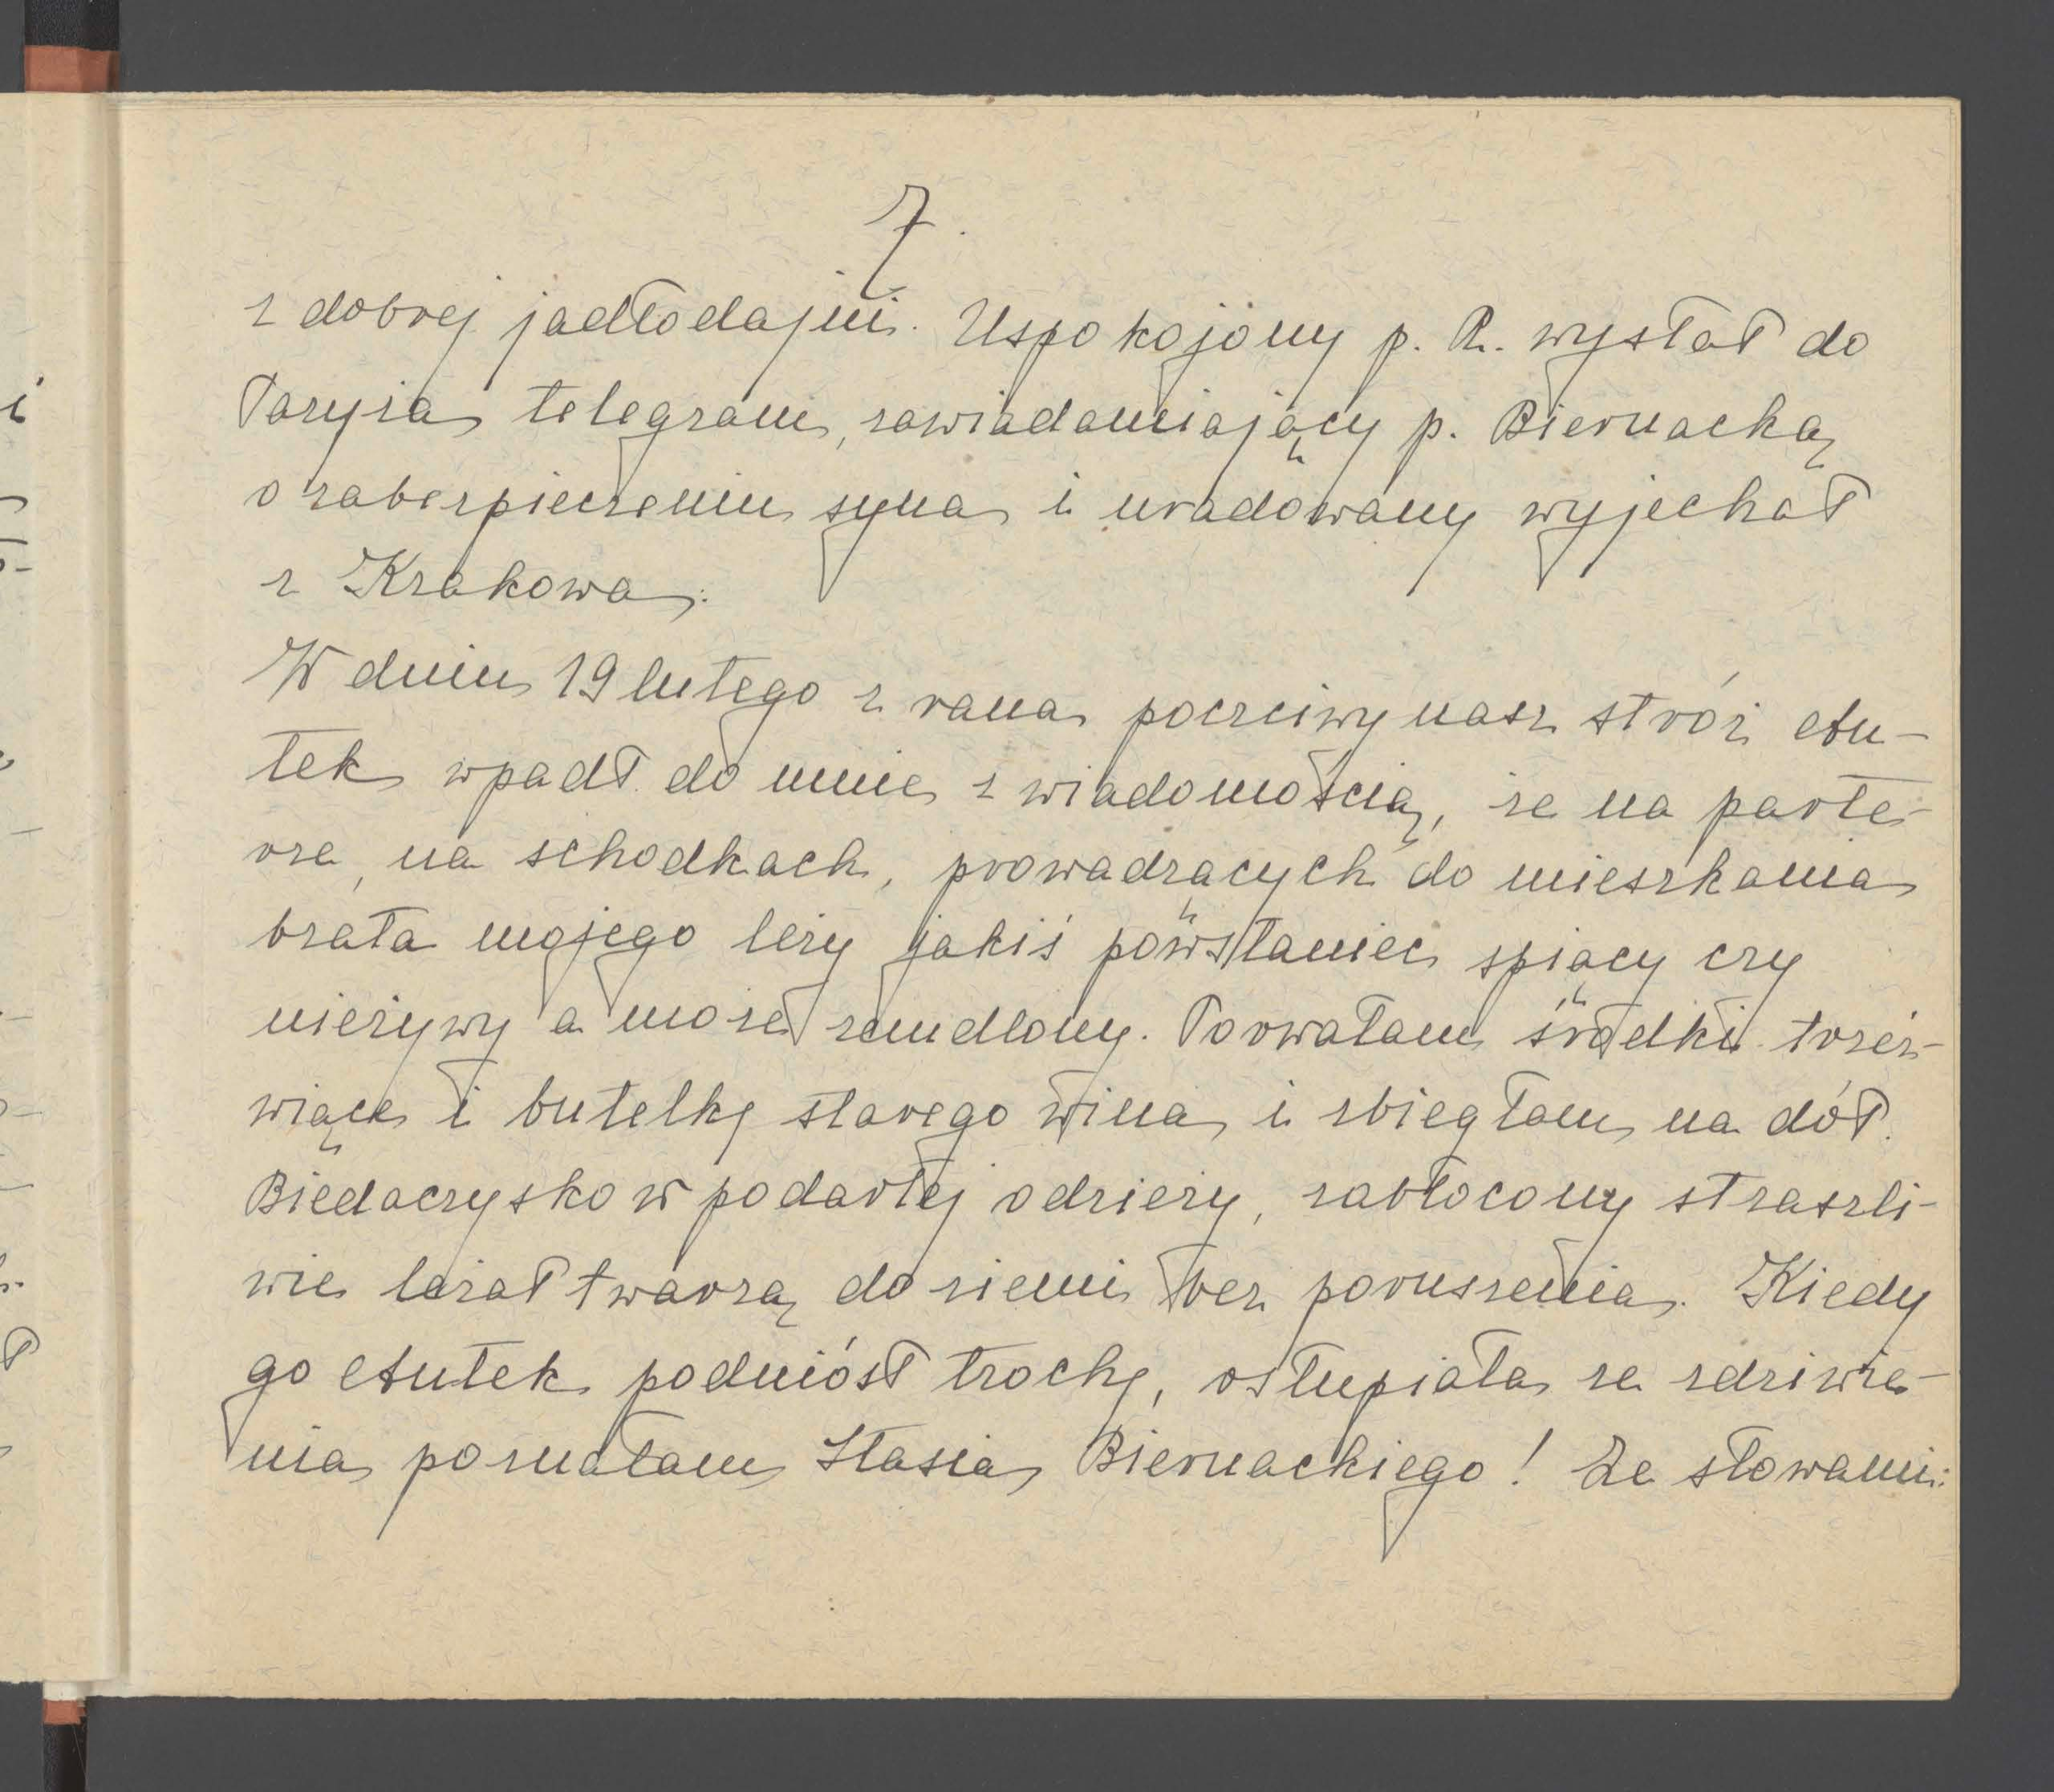 7.
z dobrej jadłodajni. Uspokojony p. R. wysłał do
Paryża telegram, zawiadamiający p. Biernacką
o zabezpieczeniu syna i uradowany wyjechał
z Krakowa.
W dniu 19 lutego z rana poczciwy nasz stróż An-
tek wpadł do mnie z wiadomością, że na parte-
rze, na schodkach, prowadzących do mieszkania
brata mojego leży jakiś powstaniec śpiący czy
nieżywy a może zemdlony. Porwałam środki trzeź-
wiące i butelkę starego wina i zbiegłam na dół.
Biedaczysko w podartej odzieży, zabłocony straszli-
wie leżał twarzą do ziemi bez poruszenia. Kiedy
go Antek podniósł trochę, osłupiała ze zdziwie-
nia poznałam Stasia Biernackiego! Ze słowami: